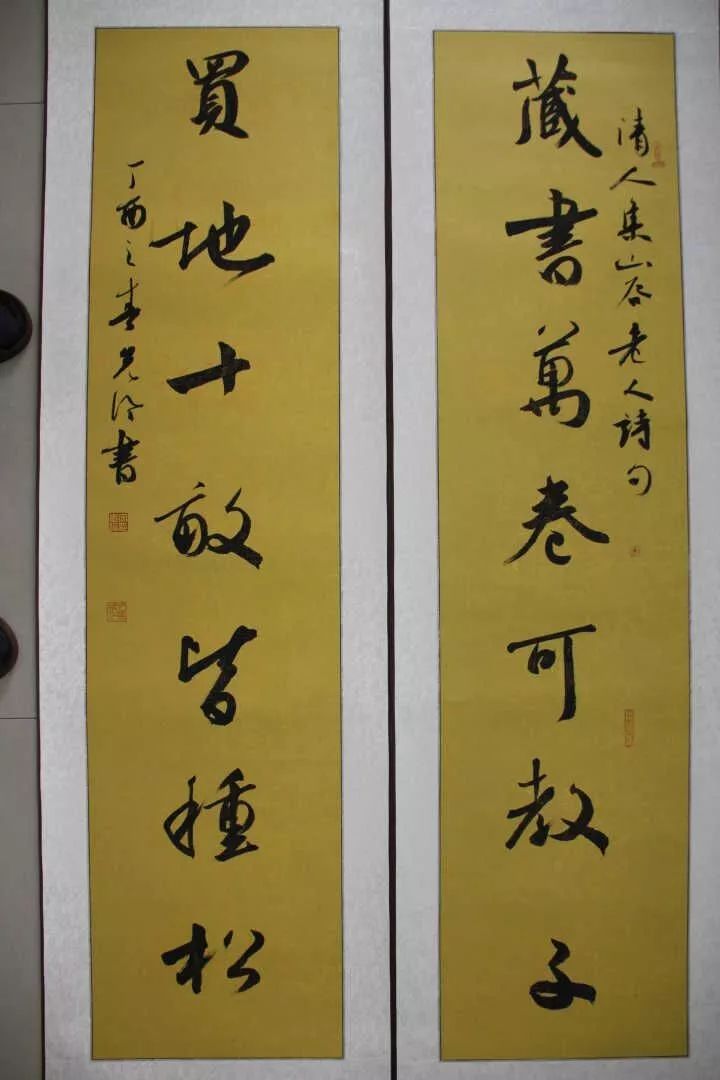 清人集山谷老人詩句
藏書萬卷可教子
買地十畝皆種松
丁酉之春 書